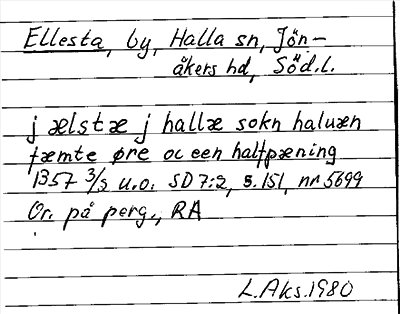 Ellesta, by, Halla sn, Jön-
åkers hd, Söd.l.
j ælstæ j hallæ sokn haluæn
fæmte øre oc een halfpæning
1357 3/3 u.o. SD 7:2, s. 151, nr 5699
Or. på perg., RA
L.Aks. 1980